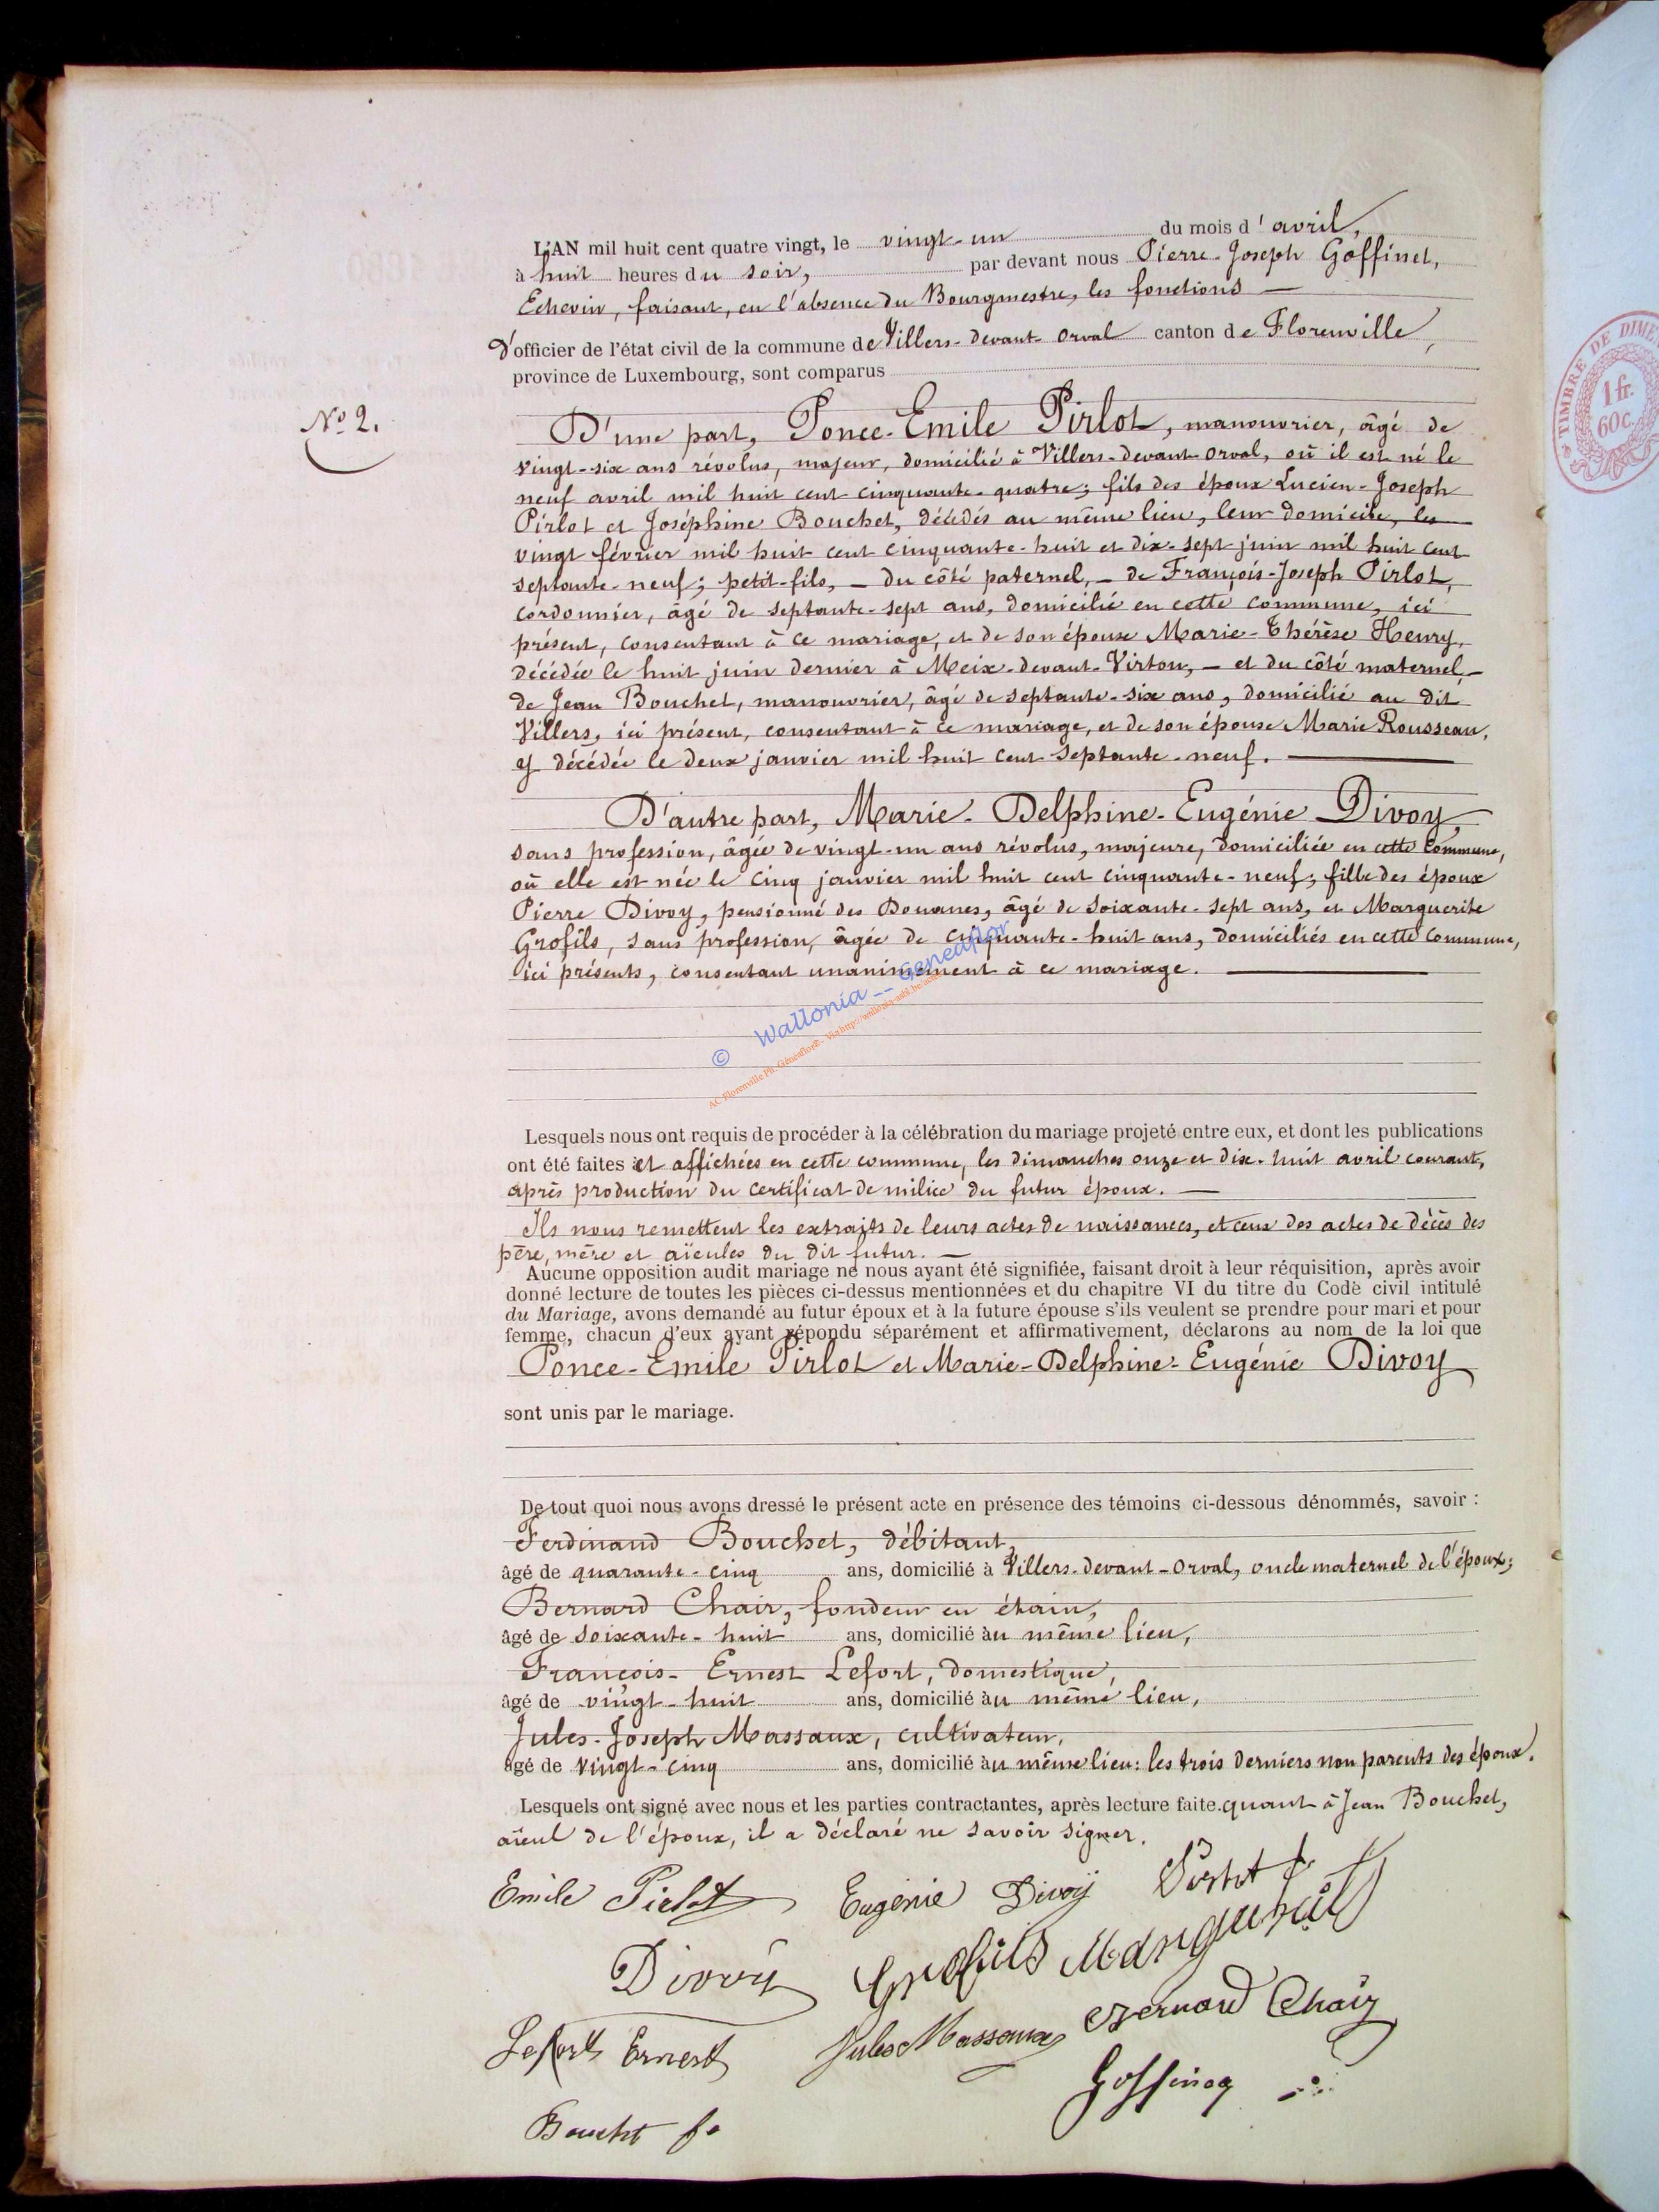 L'AN mil huit cent quatre vingt, le vingt-un du mois d'avril,
à huit heures du soir, par devant nous Pierre-Joseph Goffinet,
Echevin, faisant, en l'absence du Bourgmestre, les fonctions
d'officier de l'état civil de la commune de Villers-devant-Orval canton de Florenville,
province de Luxembourg, sont comparus
No 2.
D'une part, Ponce-Emile Pirlot, manouvrier, âgé de
vingt-six ans révolus, majeur, domicilié à Villers-devant-Orval, où il est né le
neuf avril mil huit cent cinquante-quatre; fils des époux Lucien-Joseph
Pirlot et Joséphine Bouchet, décédés au même lieu, leur domicile, les
vingt février mil huit cent cinquante-huit et dix-sept juin mil huit cent
septante-neuf; petit-fils, – du côté paternel, – de François-Joseph Pirlot,
cordonnier, âgé de septante-sept ans, domicilié en cette commune, ici
présent, consentant à ce mariage, et de son épouse Marie-Thérèse Henry,
décédée le huit juin dernier à Meix-devant-Virton, – et du côté maternel –
de Jean Bouchet, manouvrier, âgé de septante-six ans, domicilié au dit
Villers, ici présent, consentant à ce mariage, et de son épouse Marie Rousseau,
y décédée le deux janvier mil huit cent septante-neuf.
D'autre part, Marie-Delphine-Eugénie Divoy,
sans profession, âgée de vingt-un ans révolus, majeure, domiciliée en cette commune,
où elle est née le cinq janvier mil huit cent cinquante-neuf; fille des époux
Pierre Divoy, pensionné des Douanes, âgé de soixante-sept ans, et Marguerite
Grofils, sans profession, âgée de cinquante-huit ans, domiciliés en cette commune,
ici présents, consentant unanimement à ce mariage.
© Wallonia -- Geneaflor
AC Florenville Ph. Généaflor© - Via http://wallonia-asbl.be/actes
Lesquels nous ont requis de procéder à la célébration du mariage projeté entre eux, et dont les publications
ont été faites et affichées en cette commune, les dimanches onze et dix-huit avril courant,
après production du certificat de milice du futur époux. —
Ils nous remettent les extraits de leurs actes de naissances, et ceux des actes de décès des
père, mère et aïeules du dit futur. —
Aucune opposition audit mariage ne nous ayant été signifiée, faisant droit à leur réquisition, après avoir
donné lecture de toutes les pièces ci-dessus mentionnées et du chapitre VI du titre du Code civil intitulé
du Mariage, avons demandé au futur époux et à la future épouse s'ils veulent se prendre pour mari et pour
femme, chacun d'eux ayant répondu séparément et affirmativement, déclarons au nom de la loi que
Ponce-Emile Pirlot et Marie-Delphine-Eugénie Divoy
sont unis par le mariage.
De tout quoi nous avons dressé le présent acte en présence des témoins ci-dessous dénommés, savoir :
Ferdinand Bouchet, débitant,
âgé de quarante-cinq ans, domicilié à Villers-devant-Orval, oncle maternel de l'époux;
Bernard Chair, fondeur en étain,
âgé de soixante-huit ans, domicilié au même lieu,
François-Ernest Lefort, domestique,
âgé de vingt-huit ans, domicilié au même lieu,
Jules-Joseph Massaux, cultivateur,
âgé de vingt-cinq ans, domicilié au même lieu: les trois derniers non parents des époux.
Lesquels ont signé avec nous et les parties contractantes, après lecture faite. quant à Jean Bouchet,
aïeul de l'époux, il a déclaré ne savoir signer.
Emile Pirlot Eugénie Divoÿ Pirlot f
Divoÿ Grofils Marguerite
Lefort Ernest Jules Massaux Bernard Chair
Goffinet
Bouchet fd
TIMBRE DE DIME
1 fr.
60 c.